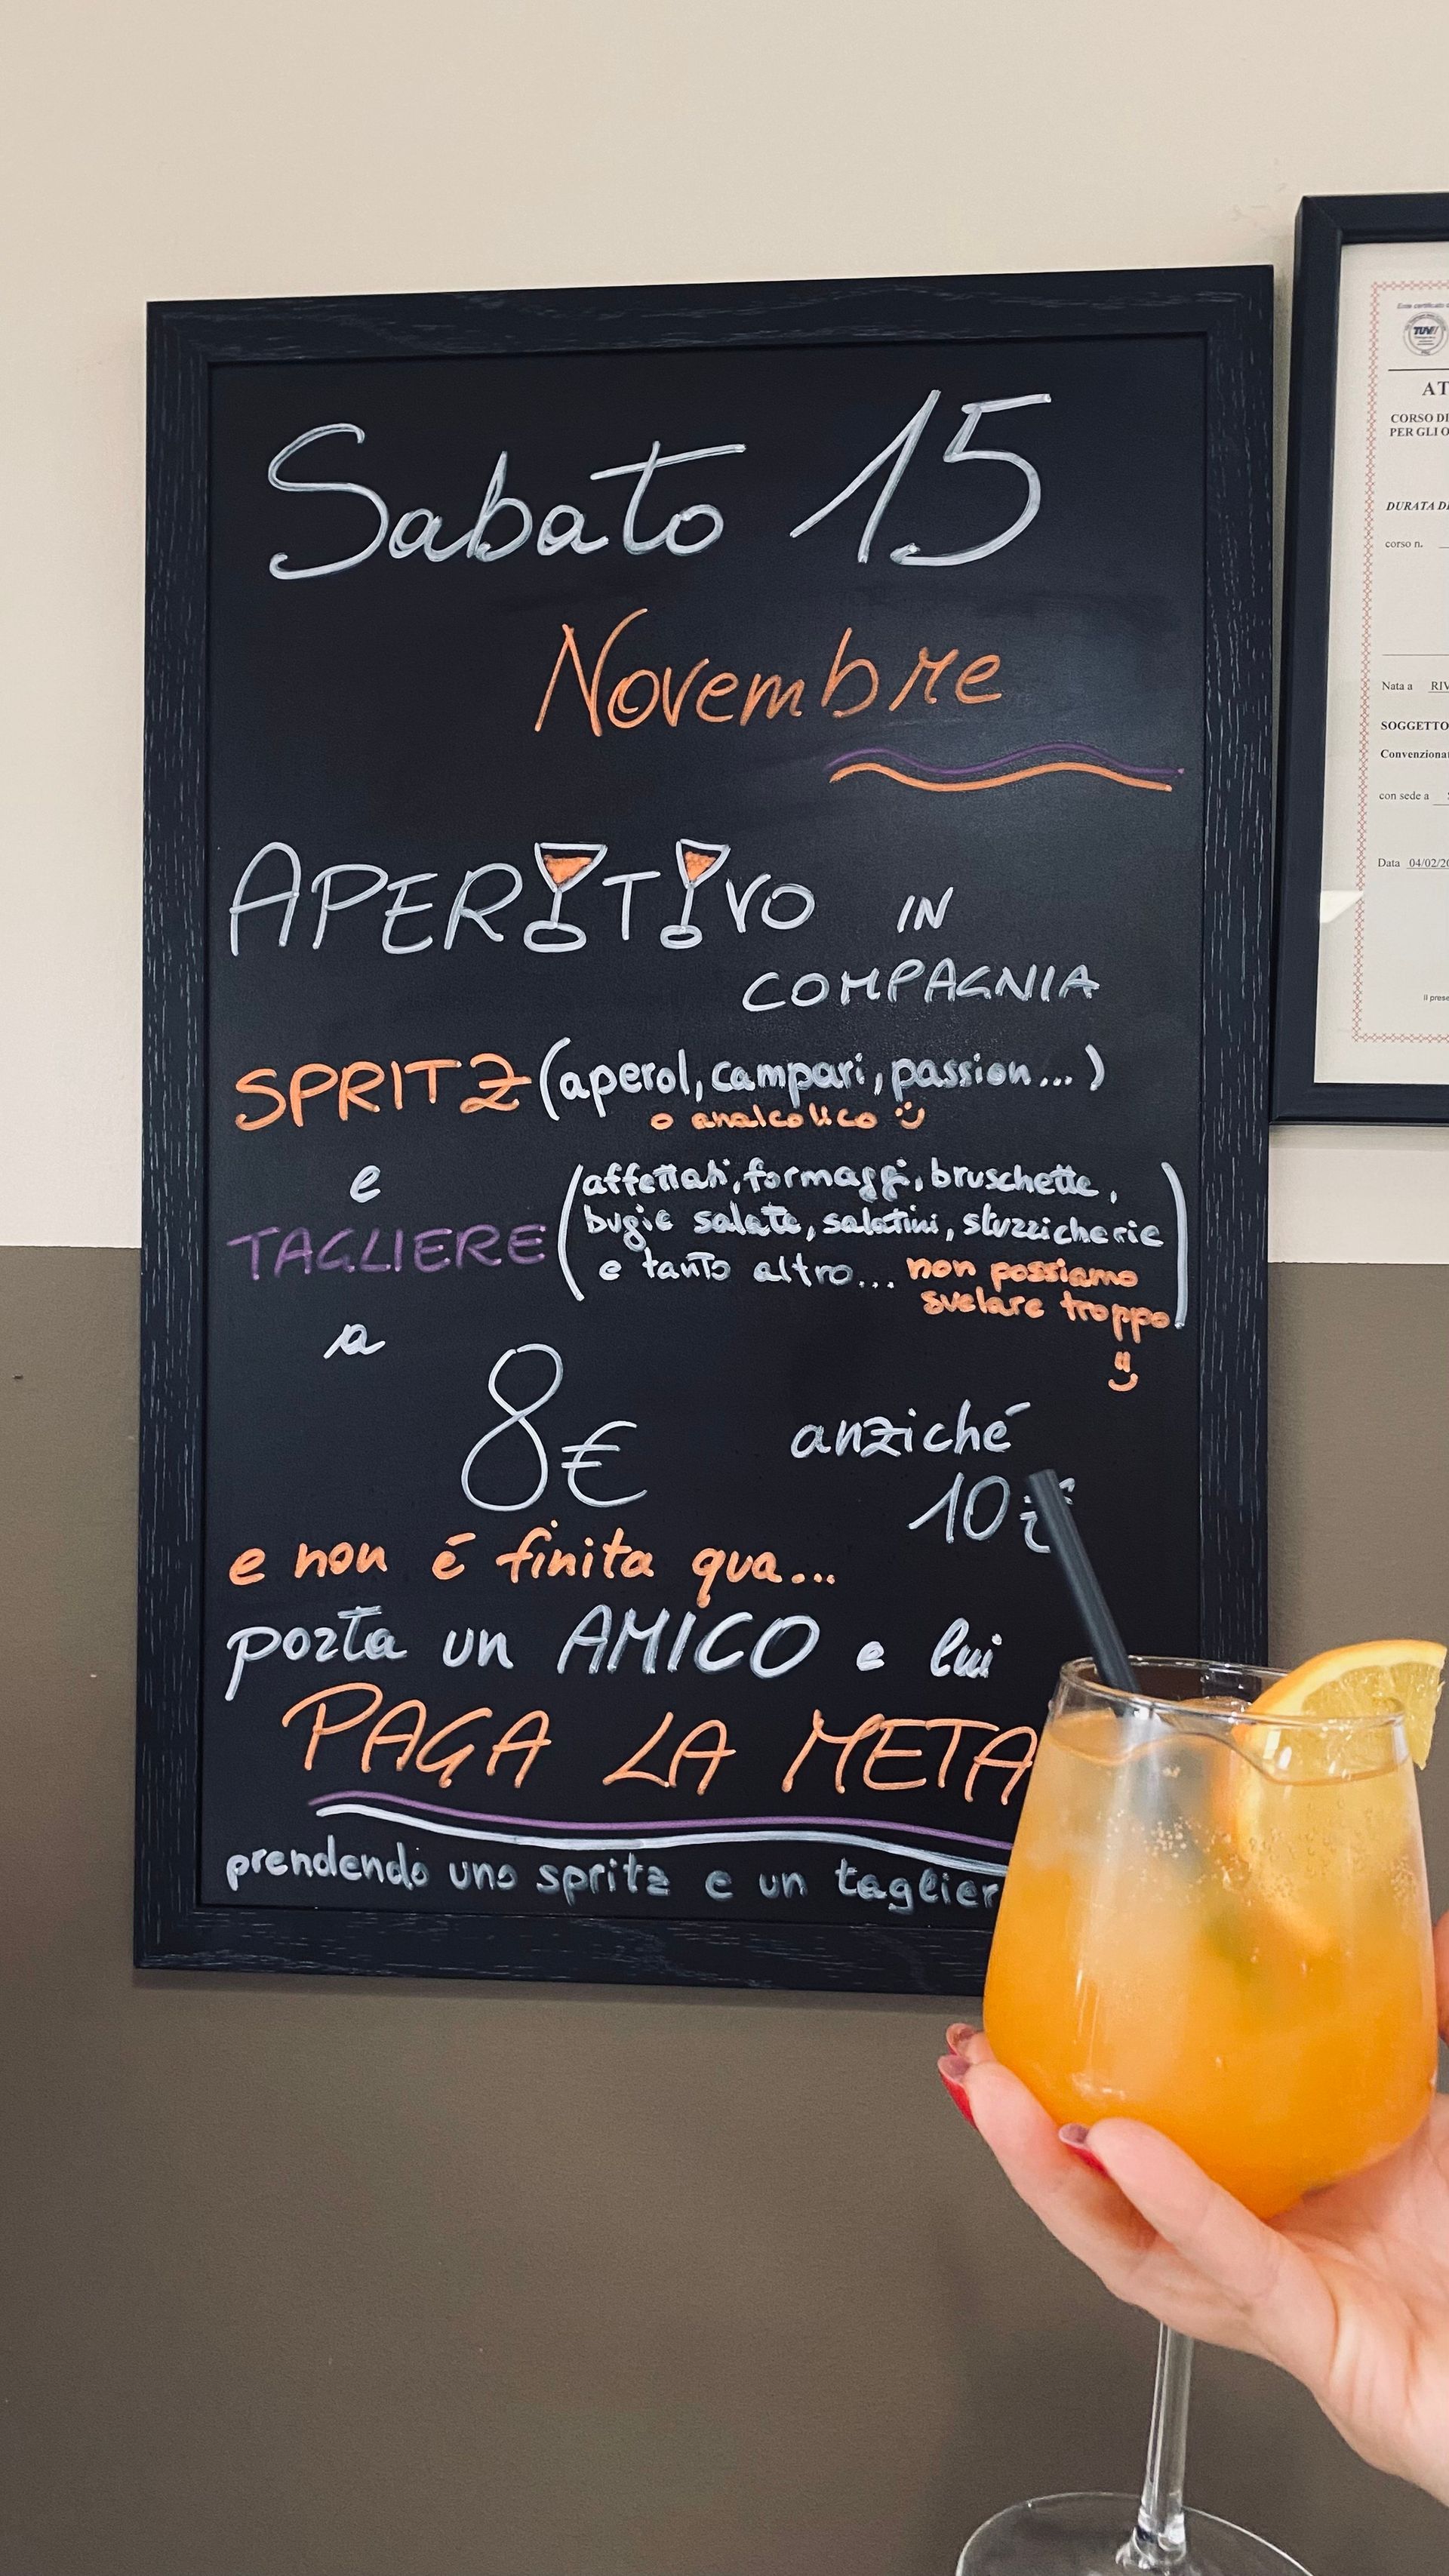 Sabato 15
Novembre
APERITIVO IN
COMPAGNIA
SPRITZ (aperol, campari, passion...)
o analcolico
e
TAGLIERE (affettati, formaggi, bruschette,
bugie salate, salatini, stuzzicherie
e tanto altro... non possiamo
svelare troppo)
a
8€
anziché
10€
e non é finita qua...
porta un AMICO e lui
PAGA LA META
prendendo uno spritz e un taglier
TUV
AT
CORSO DI
PER GLI O
DURATA DI
corso n.
Nata a RIV
SOGGETTO
Convenziona
con sede a
Data 04/02/20
Il prese